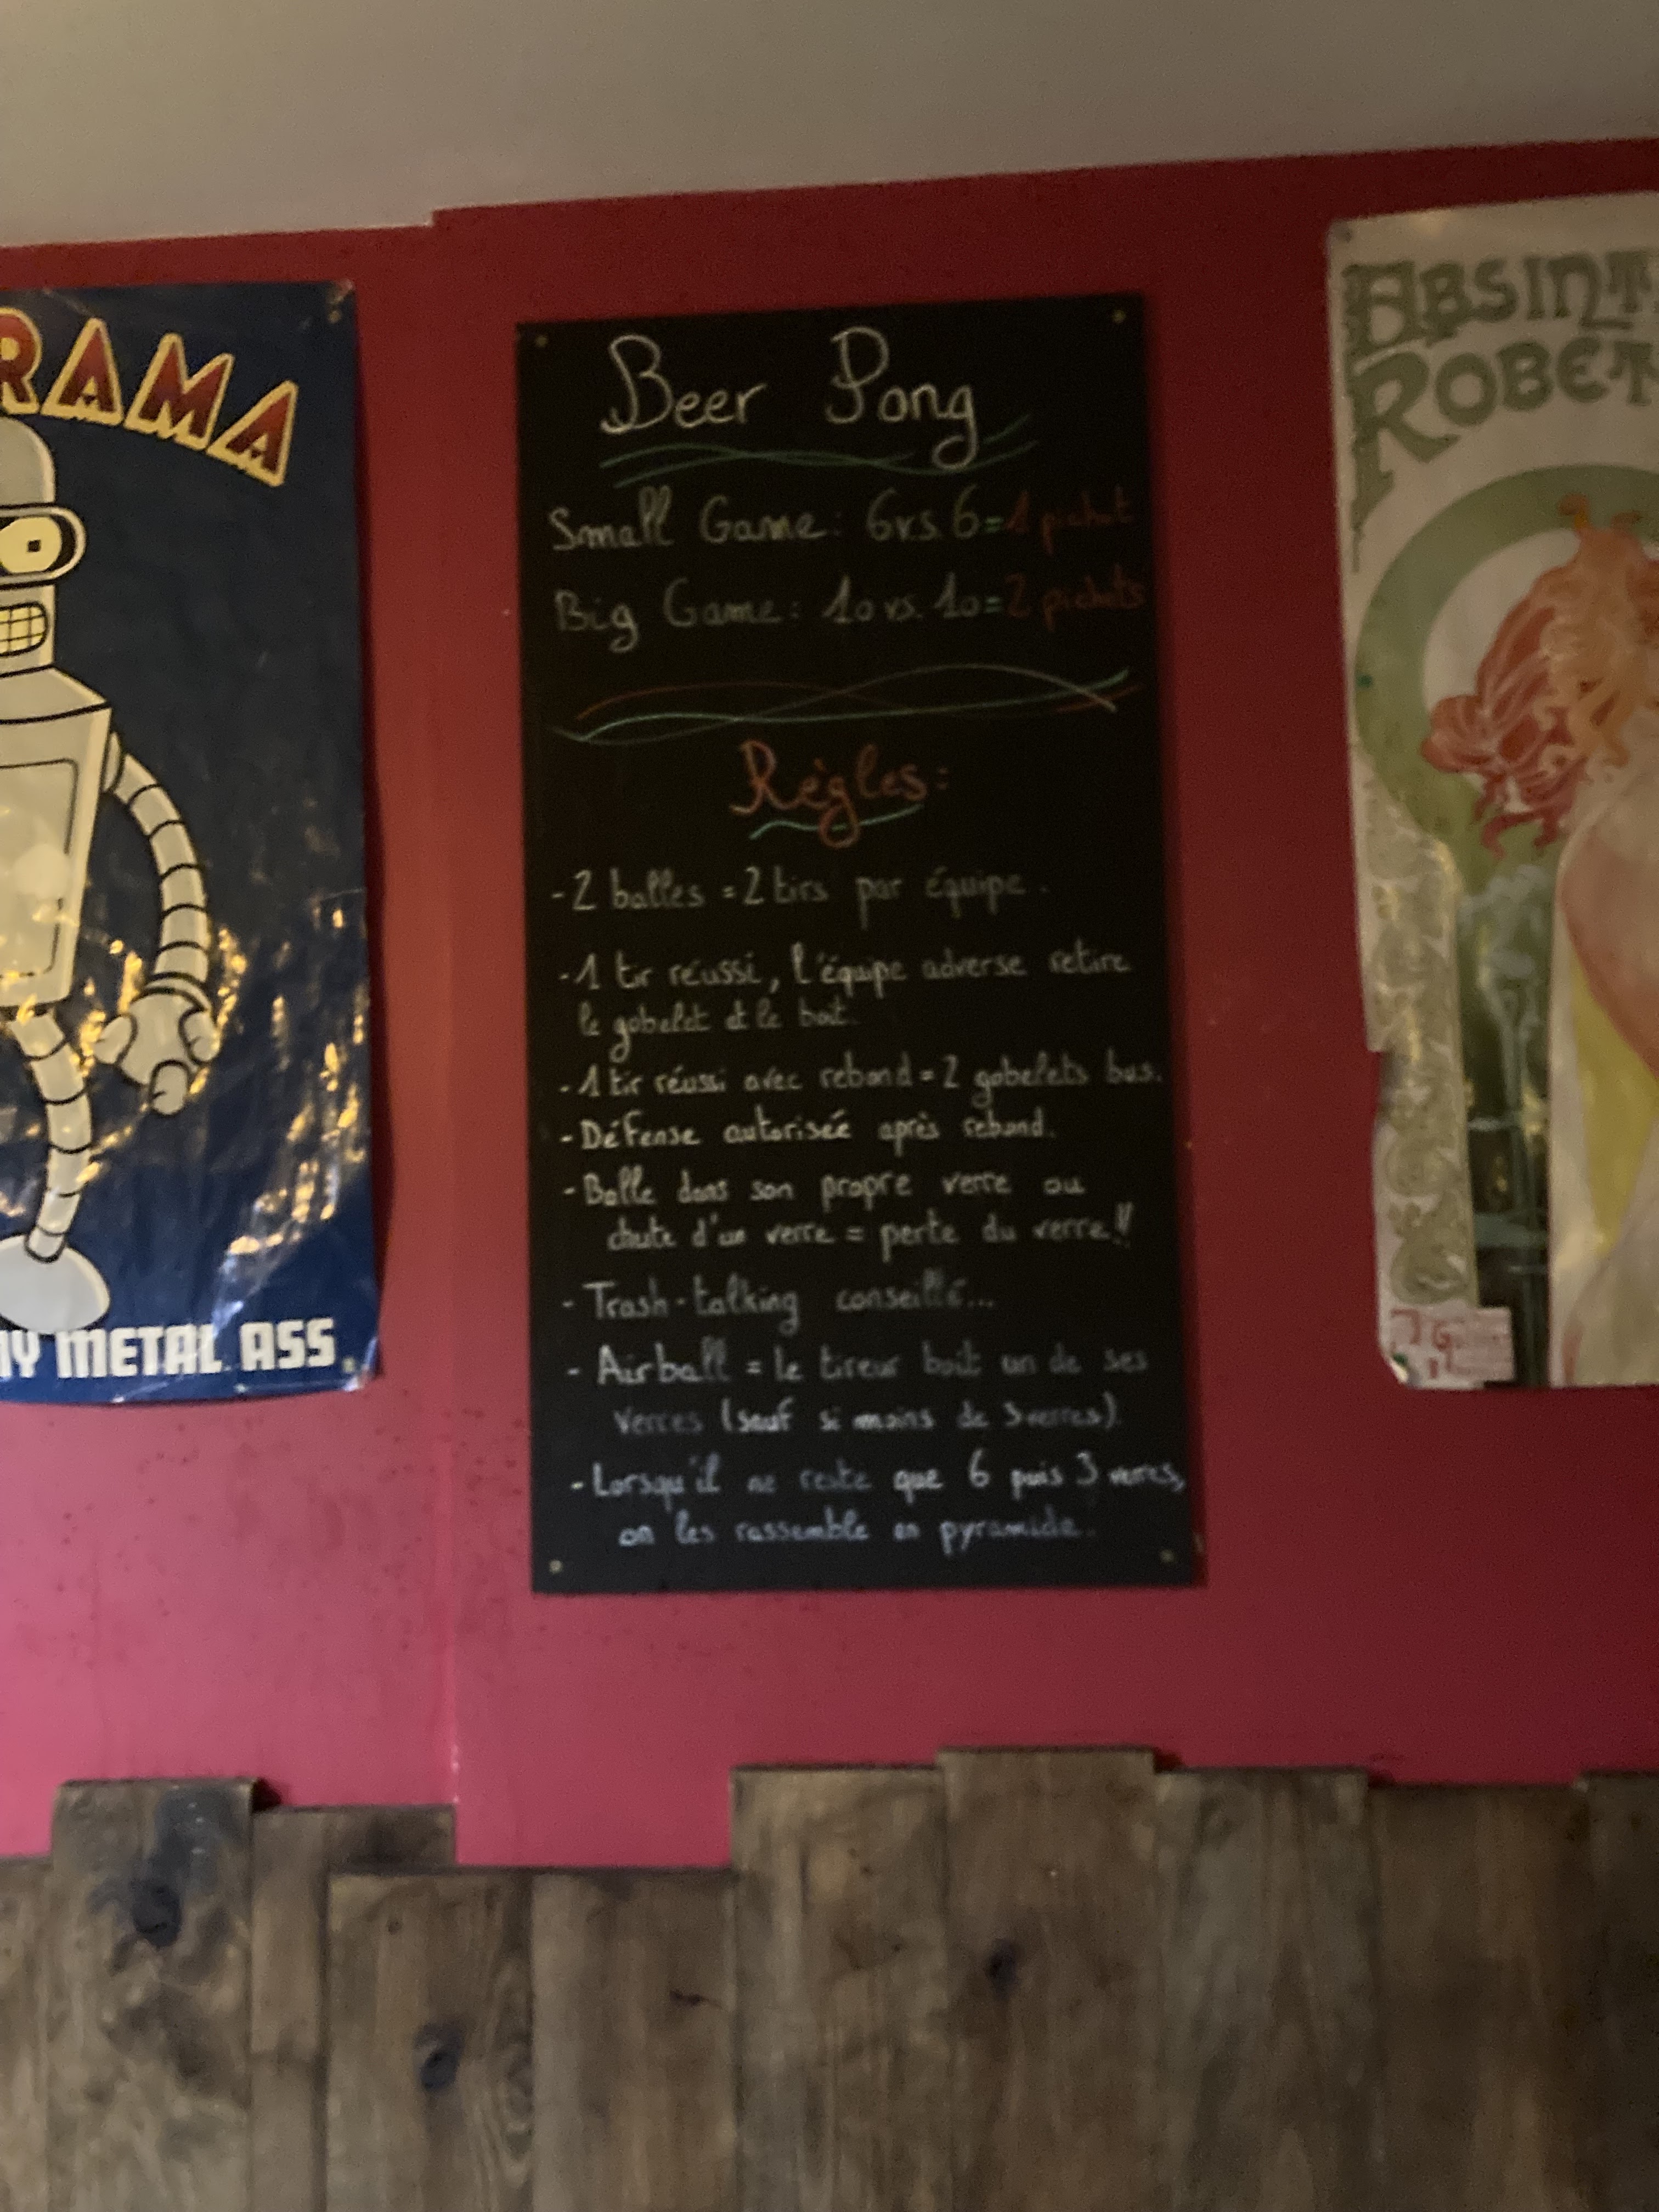 RAMA
Y METAL ASS
Beer Pong
Small Game: 6 vs. 6 = 1 pichet
Big Game: 10 vs. 10 = 2 pichets
Règles:
- 2 balles = 2 tirs par équipe.
- 1 tir réussi, l'équipe adverse retire
le gobelet et le boit.
- 1 tir réussi avec rebond = 2 gobelets bus.
- Défense autorisée après rebond.
- Balle dans son propre verre ou
chute d'un verre = perte du verre!!
- Trash-talking conseillé...
- Airball = le tireur boit un de ses
verres (sauf si moins de 3 verres).
- Lorsqu'il ne reste que 6 puis 3 verres,
on les rassemble en pyramide.
ABSINT
ROBET